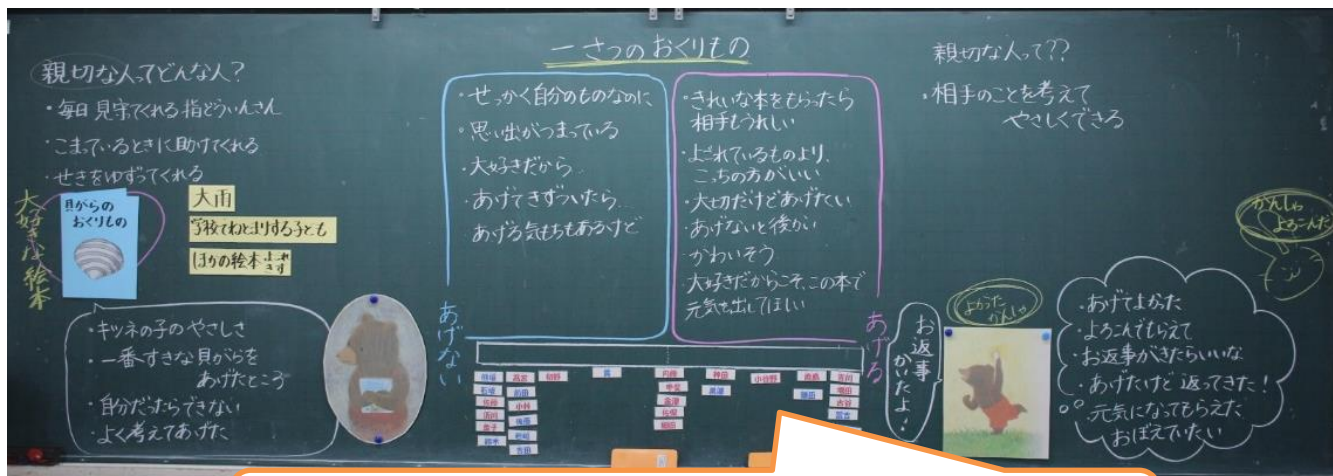 一さつのおくりもの
親切な人ってどんな人?
・毎日見守てくれる指どういんさん
・こまっているときに助けてくれる
・せきをゆずってくれる
大好きな絵本
貝がらの
おくりもの
大雨
学校でねとまりする子ども
ほかの絵本 よごれ
きず
・キツネの子のやさしさ
・一番すきな貝がらを
あげたところ
・自分だったらできない
・よく考えてあげた
・せっかく自分のものなのに
・思い出がつまっている
・大好きだから
・あげてきずついたら…
・あげる気もちもあるけど
あげない
・きれいな本をもらったら
相手もうれしい
・よごれているものより、
こっちの方がいい
・大切だけどあげたい
・あげないと後かい
・かわいそう
・大好きだからこそ、この本で
元気を出してほしい
あげる
親切な人って??
・相手のことを考えて
やさしくできる
お返事
かいたよ!
よかった
かんしゃ
かんしゃ
よろこんだ
・あげてよかった
・よろこんでもらえて
・お返事がきたらいいな
・あげたいけど返ってきた!
・元気になってもらえた
おぼえていたい